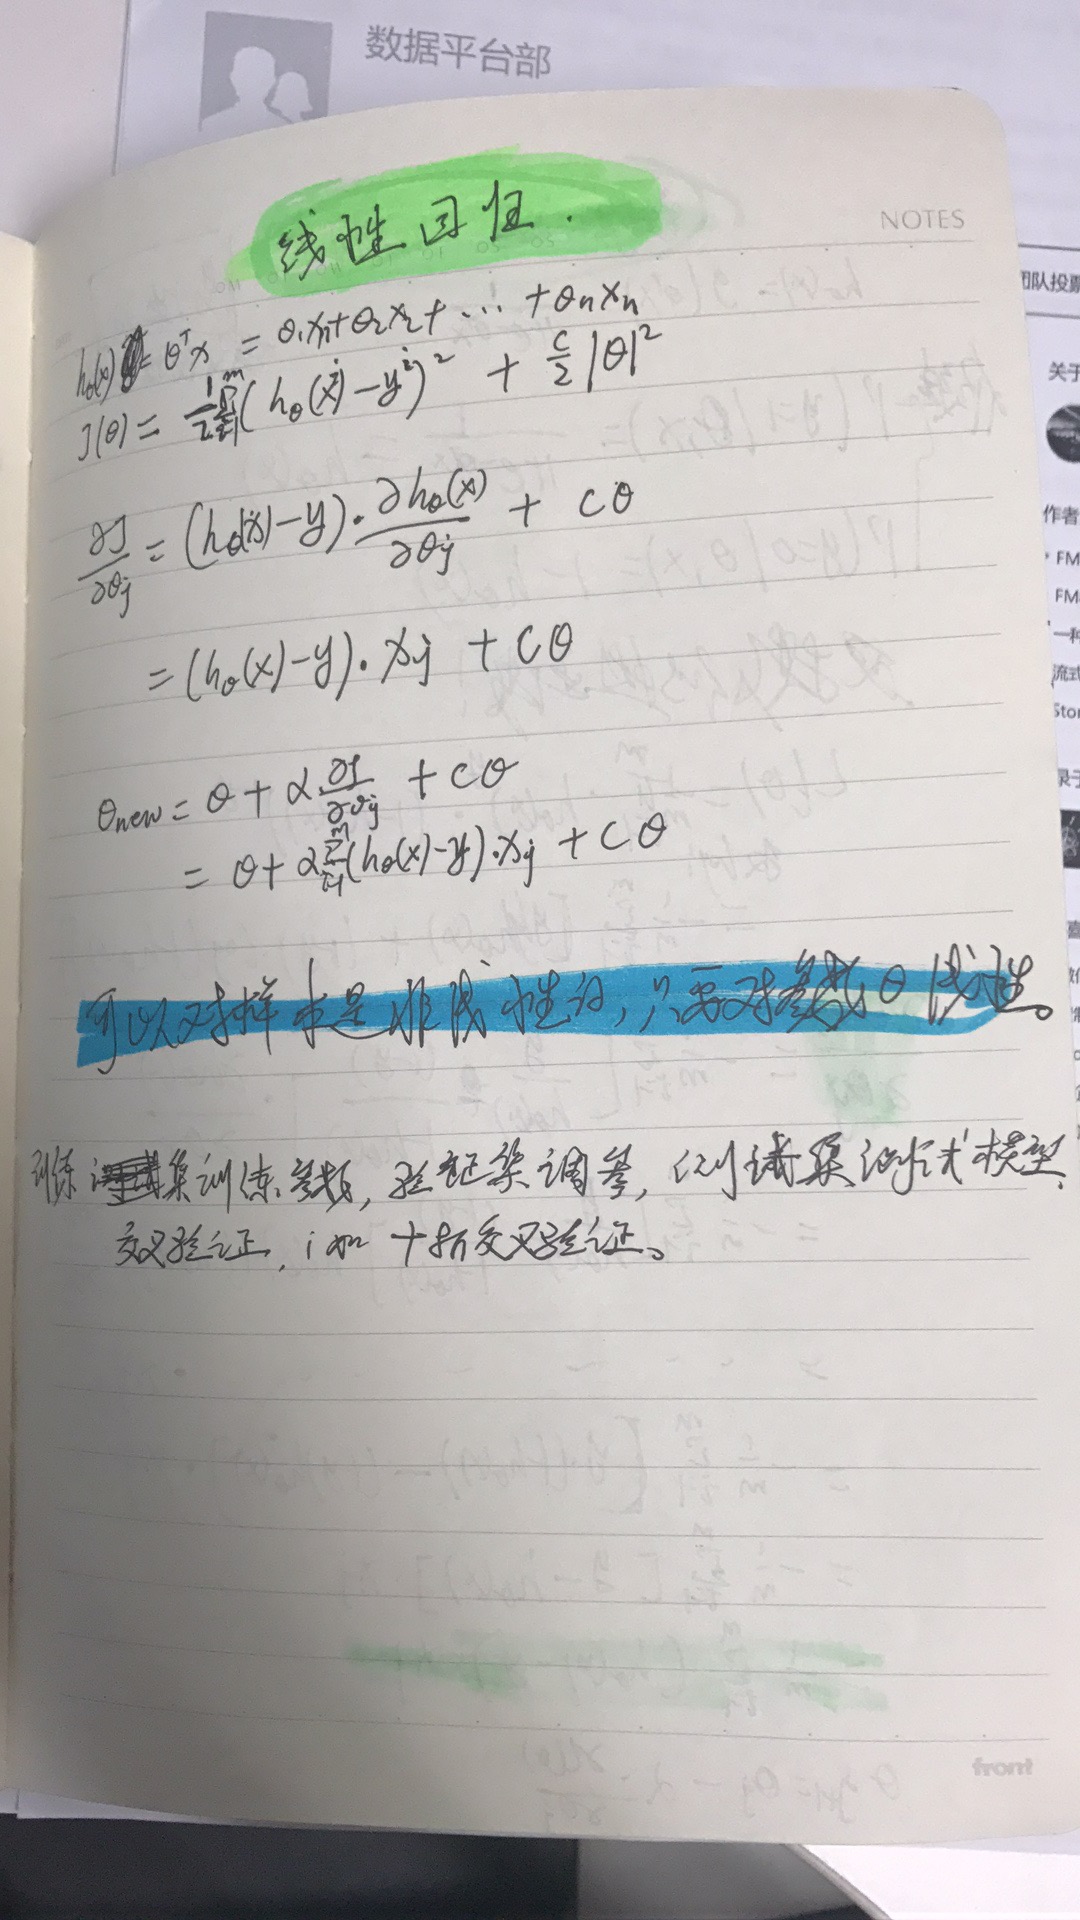 数据平台部
NOTES
线性回归.
hθ(x) = θᵀx = θ₁x₁+θ₂x₂+ ⋯ +θₙxₙ
J(θ) = 1/2 Σᵢ₌₁ᵐ (hθ(xⁱ)-yⁱ)² + C/2 |θ|²
∂J/∂θⱼ = (hθ(x)-y)·∂hθ(x)/∂θⱼ + Cθ
= (hθ(x)-y)·xⱼ + Cθ
θnew = θ + α ∂J/∂θⱼ + Cθ
= θ + α Σᵢ₌₁ᵐ (hθ(x)-y)·xⱼ + Cθ
可以对样本是非线性的,只要对参数θ线性。
训练集训练参数,验证集调参,测试集测试模型.
交叉验证,如十折交叉验证。
front
团队投票
关于
作者
FM
FM
一种
流式
Stor
录于